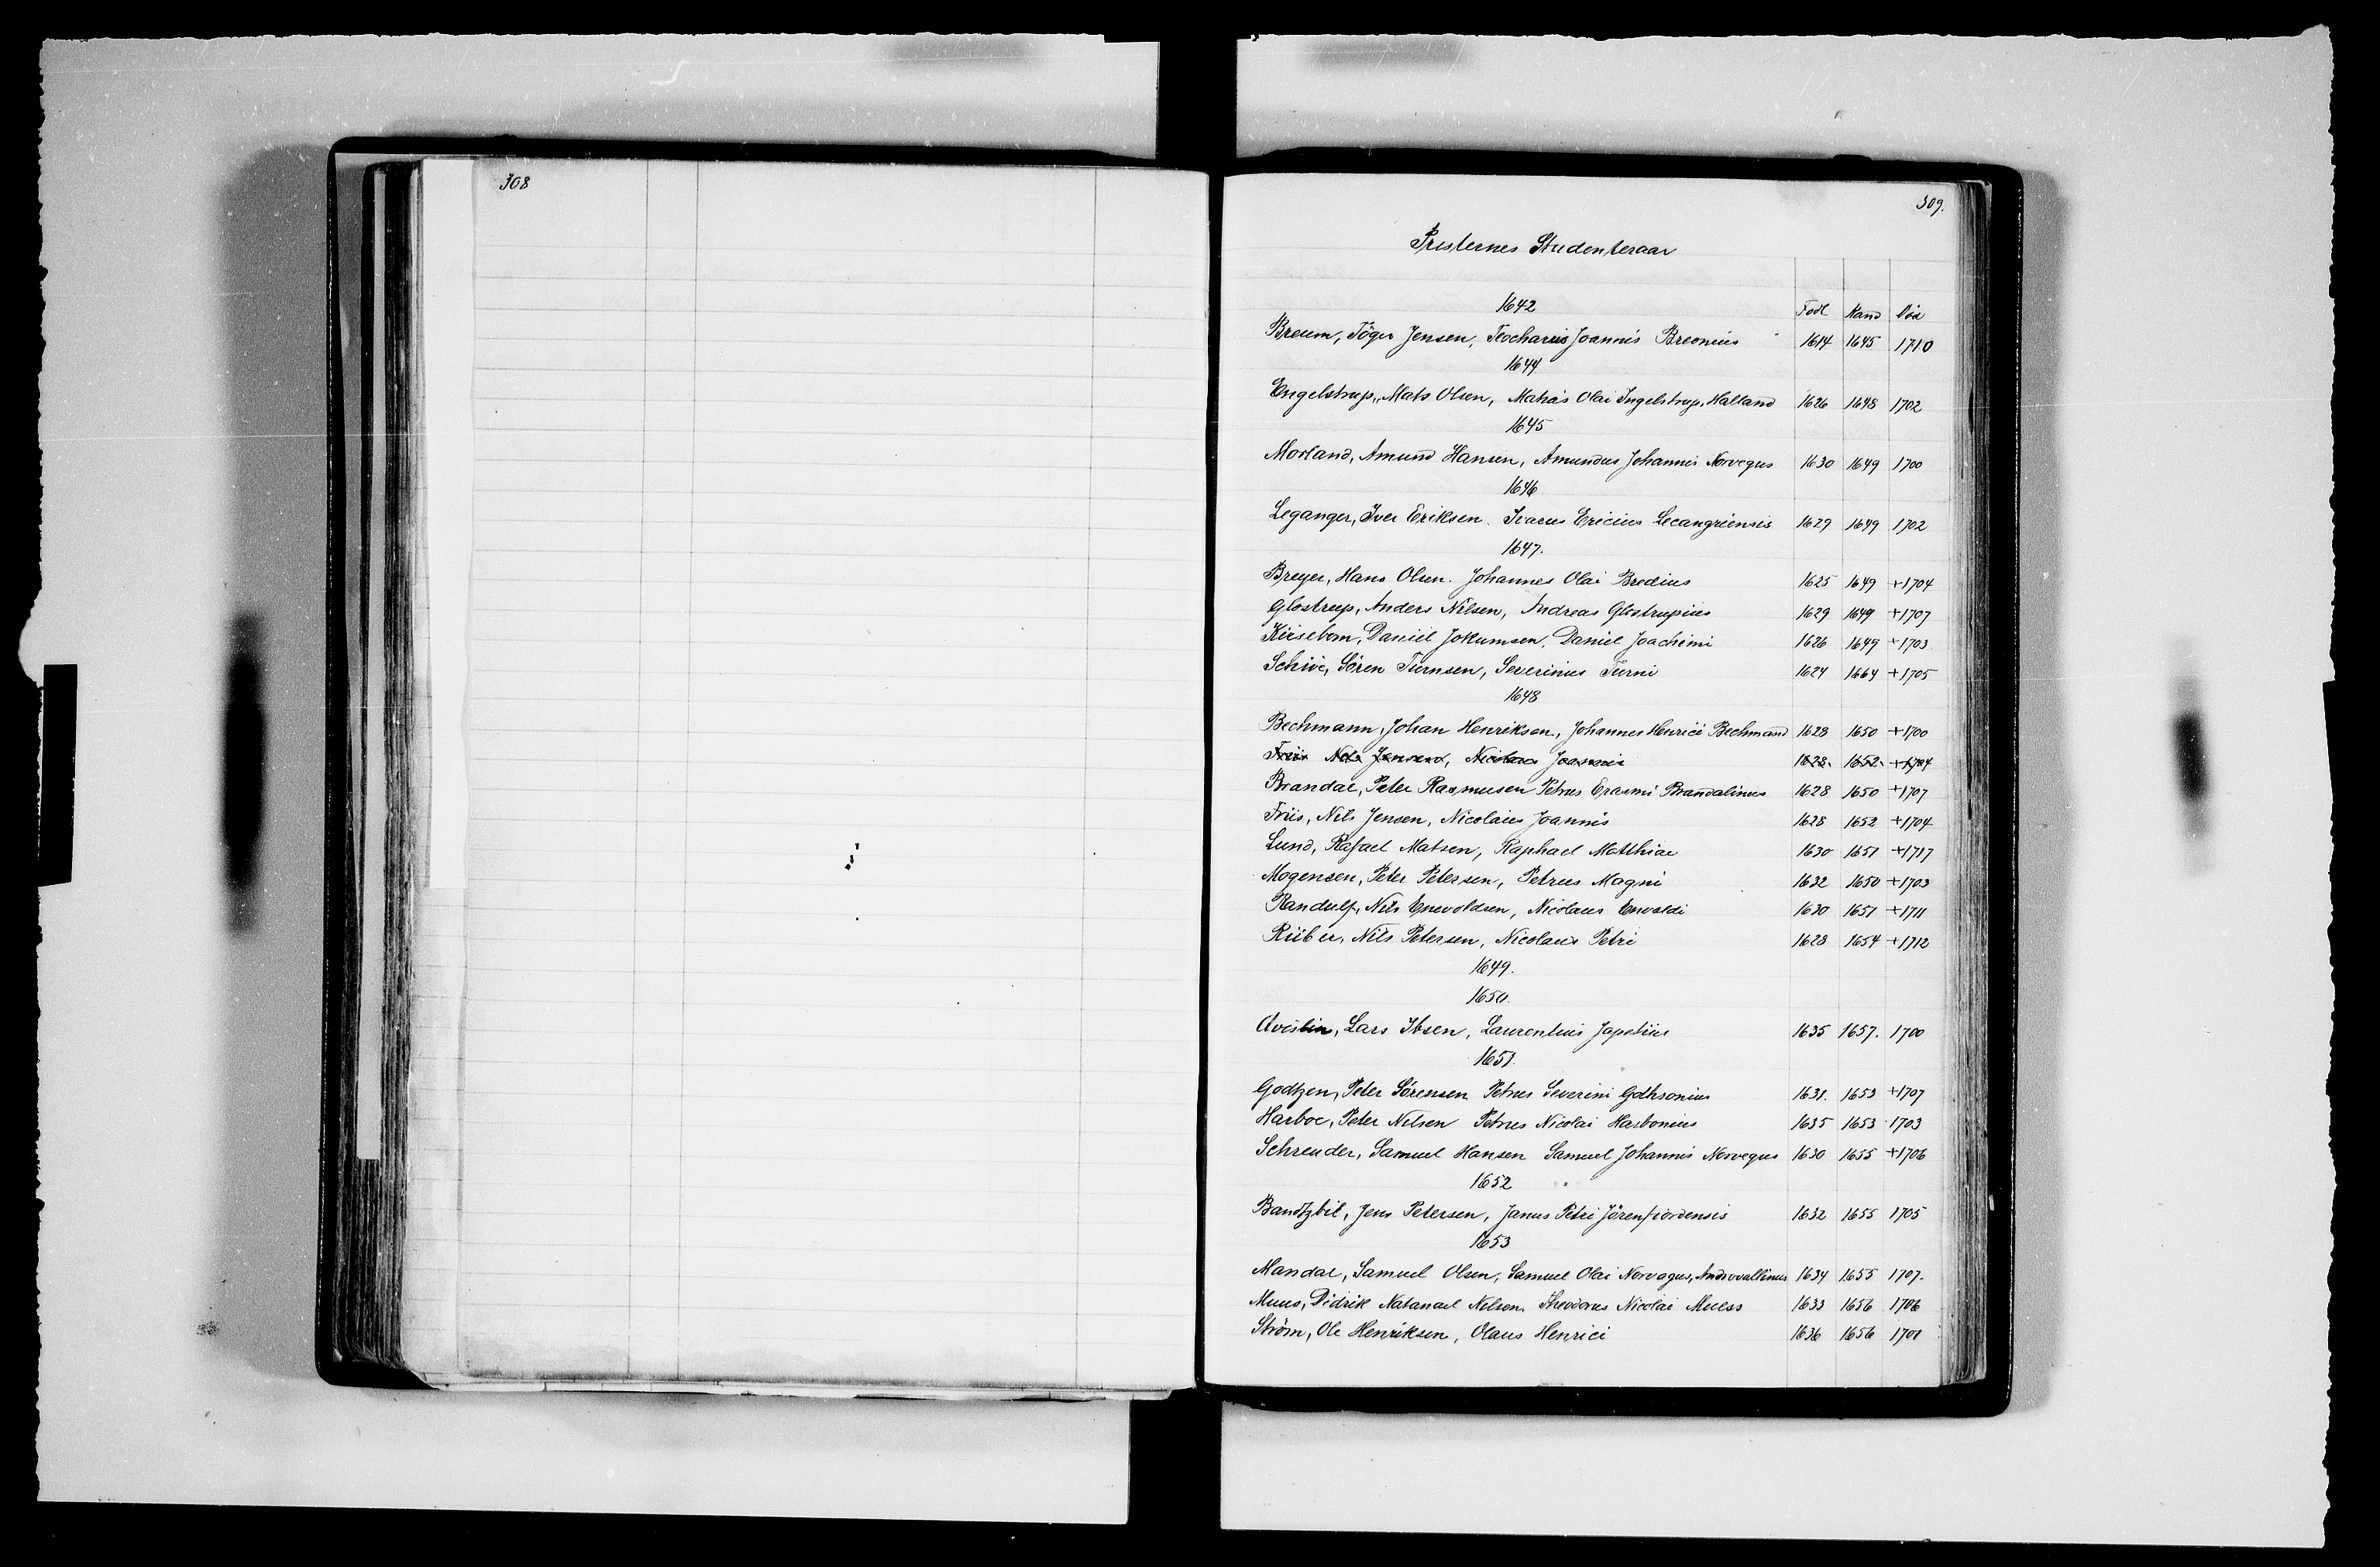 308
309.
Presternes Studenteraar
1642 Født Kand Död
Breum, Töger Jensen, Teocharus Joannis Breonius 1614 1645 1710
1644
Engelstrup, Mats Olsen, Matias Olai Ingelstrup, Halland 1626 1648 1702
1645
Morland, Amund Hansen, Amundus Johannis Norvegus 1630 1649 1700
1646
Leganger, Iver Eriksen. Ivarus Ericius Lecangriensis 1629 1649 1702
1647.
Breyer, Hans Olsen. Johannes Olai Bredius 1625 1649 +1704
Glostrup, Anders Nilsen, Andreas Glostrupius 1629 1649 +1707
Kirsebom, Daniel Jokumsen, Daniel Joachimi 1626 1649 +1703
Schive, Sören Turnsen, Severinus Turni 1624 1664 +1705
1648
Bechmann, Johan Henriksen, Johannes Henrici Bechmand 1628 1650 +1700
Friis Nels Jensen, Nicolaus Joannis 1628. 1652. +1704
Brandal, Peter Rasmusen Petrus Erasmi Brandalinus 1628 1650 +1707
Friis, Nils Jensen, Nicolaus Joannis 1628 1652 +1704
Lund, Rafael Matsen, Raphael Matthiae 1630 1651 +1717
Mogensen, Peter Petersen, Petrus Magni 1632 1650 +1703
Randulf, Nils Enevoldsen, Nicolaus Envaldi 1630 1651 +1711
Riiber, Nils Petersen, Nicolaus Petri 1628 1654 +1712
1649.
1650.
Lars Ibsen, Laurentius Japetius 1635 1657. 1700
1651.
Godtzen, Peter Sörensen Petrus Severini Gdthsonius 1631. 1653 +1707
Harboe, Peter Nelsen Petrus Nicolai Harbonius 1635 1653 1703
Schreuder, Samuel Hansen Samuel Johannis Norvegus 1630 1655 +1706
1652
Bandtzbil, Jens Petersen, Janus Petri Jörenfiordensis 1632 1655 1705
1653
Mandal, Samuel Olsen, Samuel Olai Norvagus, Androvallinus 1634 1655 1707.
Muus, Didrik Natanael Nelsen, Theodorus Nicolai Muess 1633 1656 1706
Ström, Ole Henriksen, Olaus Henrici 1636 1656 1701